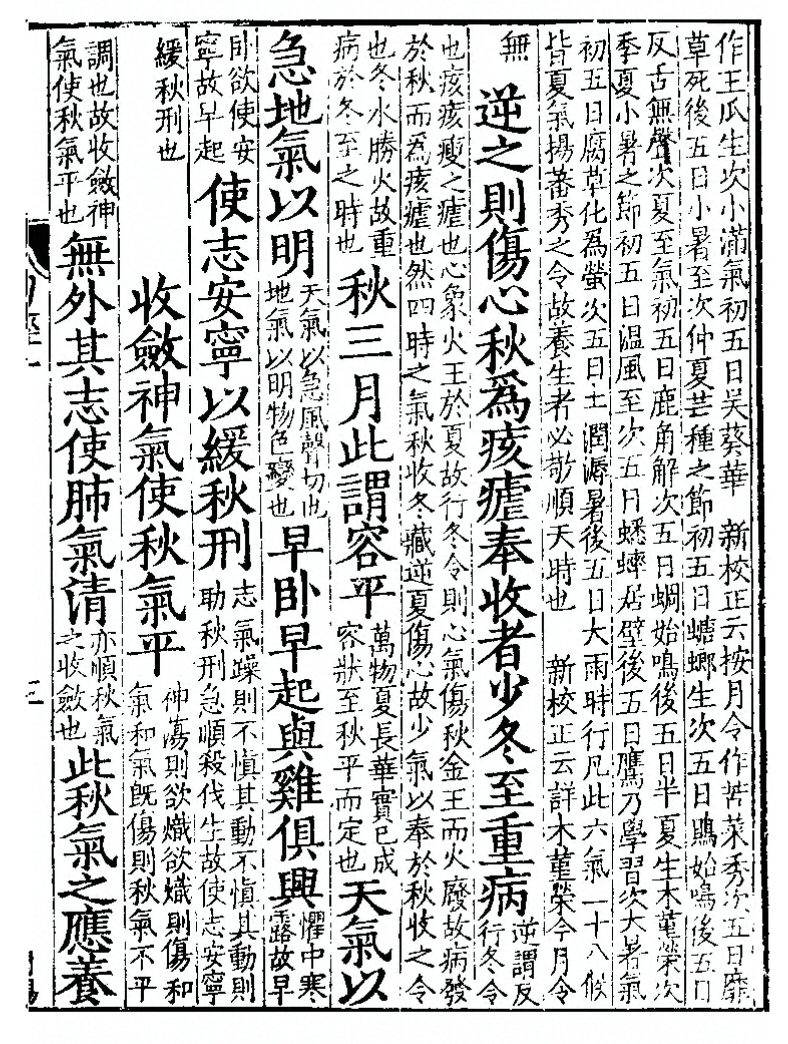 作王瓜生次小滿氣初五日吴葵華　新校正云按月令作苦菜秀次五日靡
草死後五日小暑至次仲夏芒種之節初五日螗螂生次五日鵙始鳴後五日
反舌無聲次夏至氣初五日鹿角解次五日蜩始鳴後五日半夏生木菫榮次
季夏小暑之節初五日温風至次五日蟋蟀居壁後五日鷹乃學習次大暑氣
初五日腐草化爲螢次五日土潤溽暑後五日大雨時行凡此六氣一十八候
皆夏氣揚蕃秀之令故養生者必敬順天時也　新校正云詳木菫榮今月令
無
逆之則傷心秋爲痎瘧奉收者少冬至重病
逆謂反
行冬令
也痎痎瘦之瘧也心象火王於夏故行冬令則心氣傷秋金王而火廢故病發
於秋而爲痎瘧也然四時之氣秋收冬藏逆夏傷心故少氣以奉於秋收之令
也冬水勝火故重
病於冬至之時也
秋三月此謂容平
萬物夏長華實已成
容狀至秋平而定也
天氣以
急地氣以明
天氣以急風聲切也
地氣以明物色變也
早卧早起與雞俱興
懼中寒
露故早
卧欲使安
寧故早起
使志安寧以緩秋刑
志氣躁則不慎其動不慎其動則
助秋刑急順殺伐生故使志安寧
緩秋刑也
收斂神氣使秋氣平
神蕩則欲熾欲熾則傷和
氣和氣既傷則秋氣不平
調也故收斂神
氣使秋氣平也
無外其志使肺氣清
亦順秋氣
之收斂也
此秋氣之應養
三